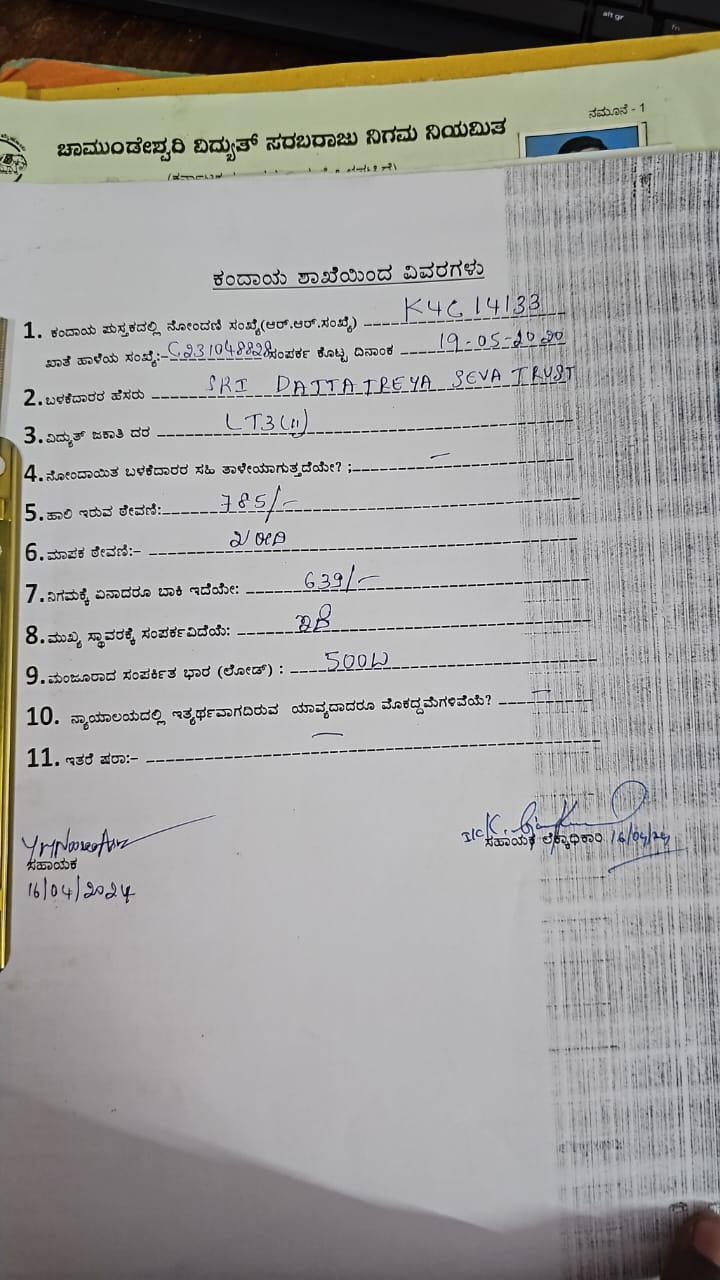 alt gr
fn
ನಮೂನೆ - 1
ಚಾಮುಂಡೇಶ್ವರಿ ವಿದ್ಯುತ್ ಸರಬರಾಜು ನಿಗಮ ನಿಯಮಿತ
ಕಂದಾಯ ಶಾಖೆಯಿಂದ ವಿವರಗಳು
1. ಕಂದಾಯ ಪುಸ್ತಕದಲ್ಲಿ ನೋಂದಣಿ ಸಂಖ್ಯೆ(ಆರ್.ಆರ್.ಸಂಖ್ಯೆ) K4G14133
ಖಾತೆ ಹಾಳೆಯ ಸಂಖ್ಯೆ:- C231048828 ಸಂಪರ್ಕ ಕೊಟ್ಟ ದಿನಾಂಕ 19-05-2020
2. ಬಳಕೆದಾರರ ಹೆಸರು SRI DATTATREYA SEVA TRUST
3. ವಿದ್ಯುತ್ ಜಕಾತಿ ದರ LT3(ii)
4. ನೋಂದಾಯಿತ ಬಳಕೆದಾರರ ಸಹಿ ತಾಳೇಯಾಗುತ್ತದೆಯೇ? ; —
5. ಹಾಲಿ ಇರುವ ಠೇವಣಿ: 785/-
6. ಮಾಪಕ ಠೇವಣಿ:-
7. ನಿಗಮಕ್ಕೆ ಏನಾದರೂ ಬಾಕಿ ಇದೆಯೇ: 639/-
8. ಮುಖ್ಯ ಸ್ಥಾವರಕ್ಕೆ ಸಂಪರ್ಕವಿದೆಯೆ:
9. ಮಂಜೂರಾದ ಸಂಪರ್ಕಿತ ಭಾರ (ಲೋಡ್) : 500W
10. ನ್ಯಾಯಾಲಯದಲ್ಲಿ ಇತ್ಯರ್ಥವಾಗದಿರುವ ಯಾವ್ಯದಾದರೂ ಮೊಕದ್ದಮೆಗಳಿವೆಯೆ? —
11. ಇತರೆ ಷರಾ:- —
ಸಹಾಯಕ
16/04/2024
I/C
ಸಹಾಯಕ ಲೆಕ್ಕಾಧಿಕಾರಿ 16/04/24